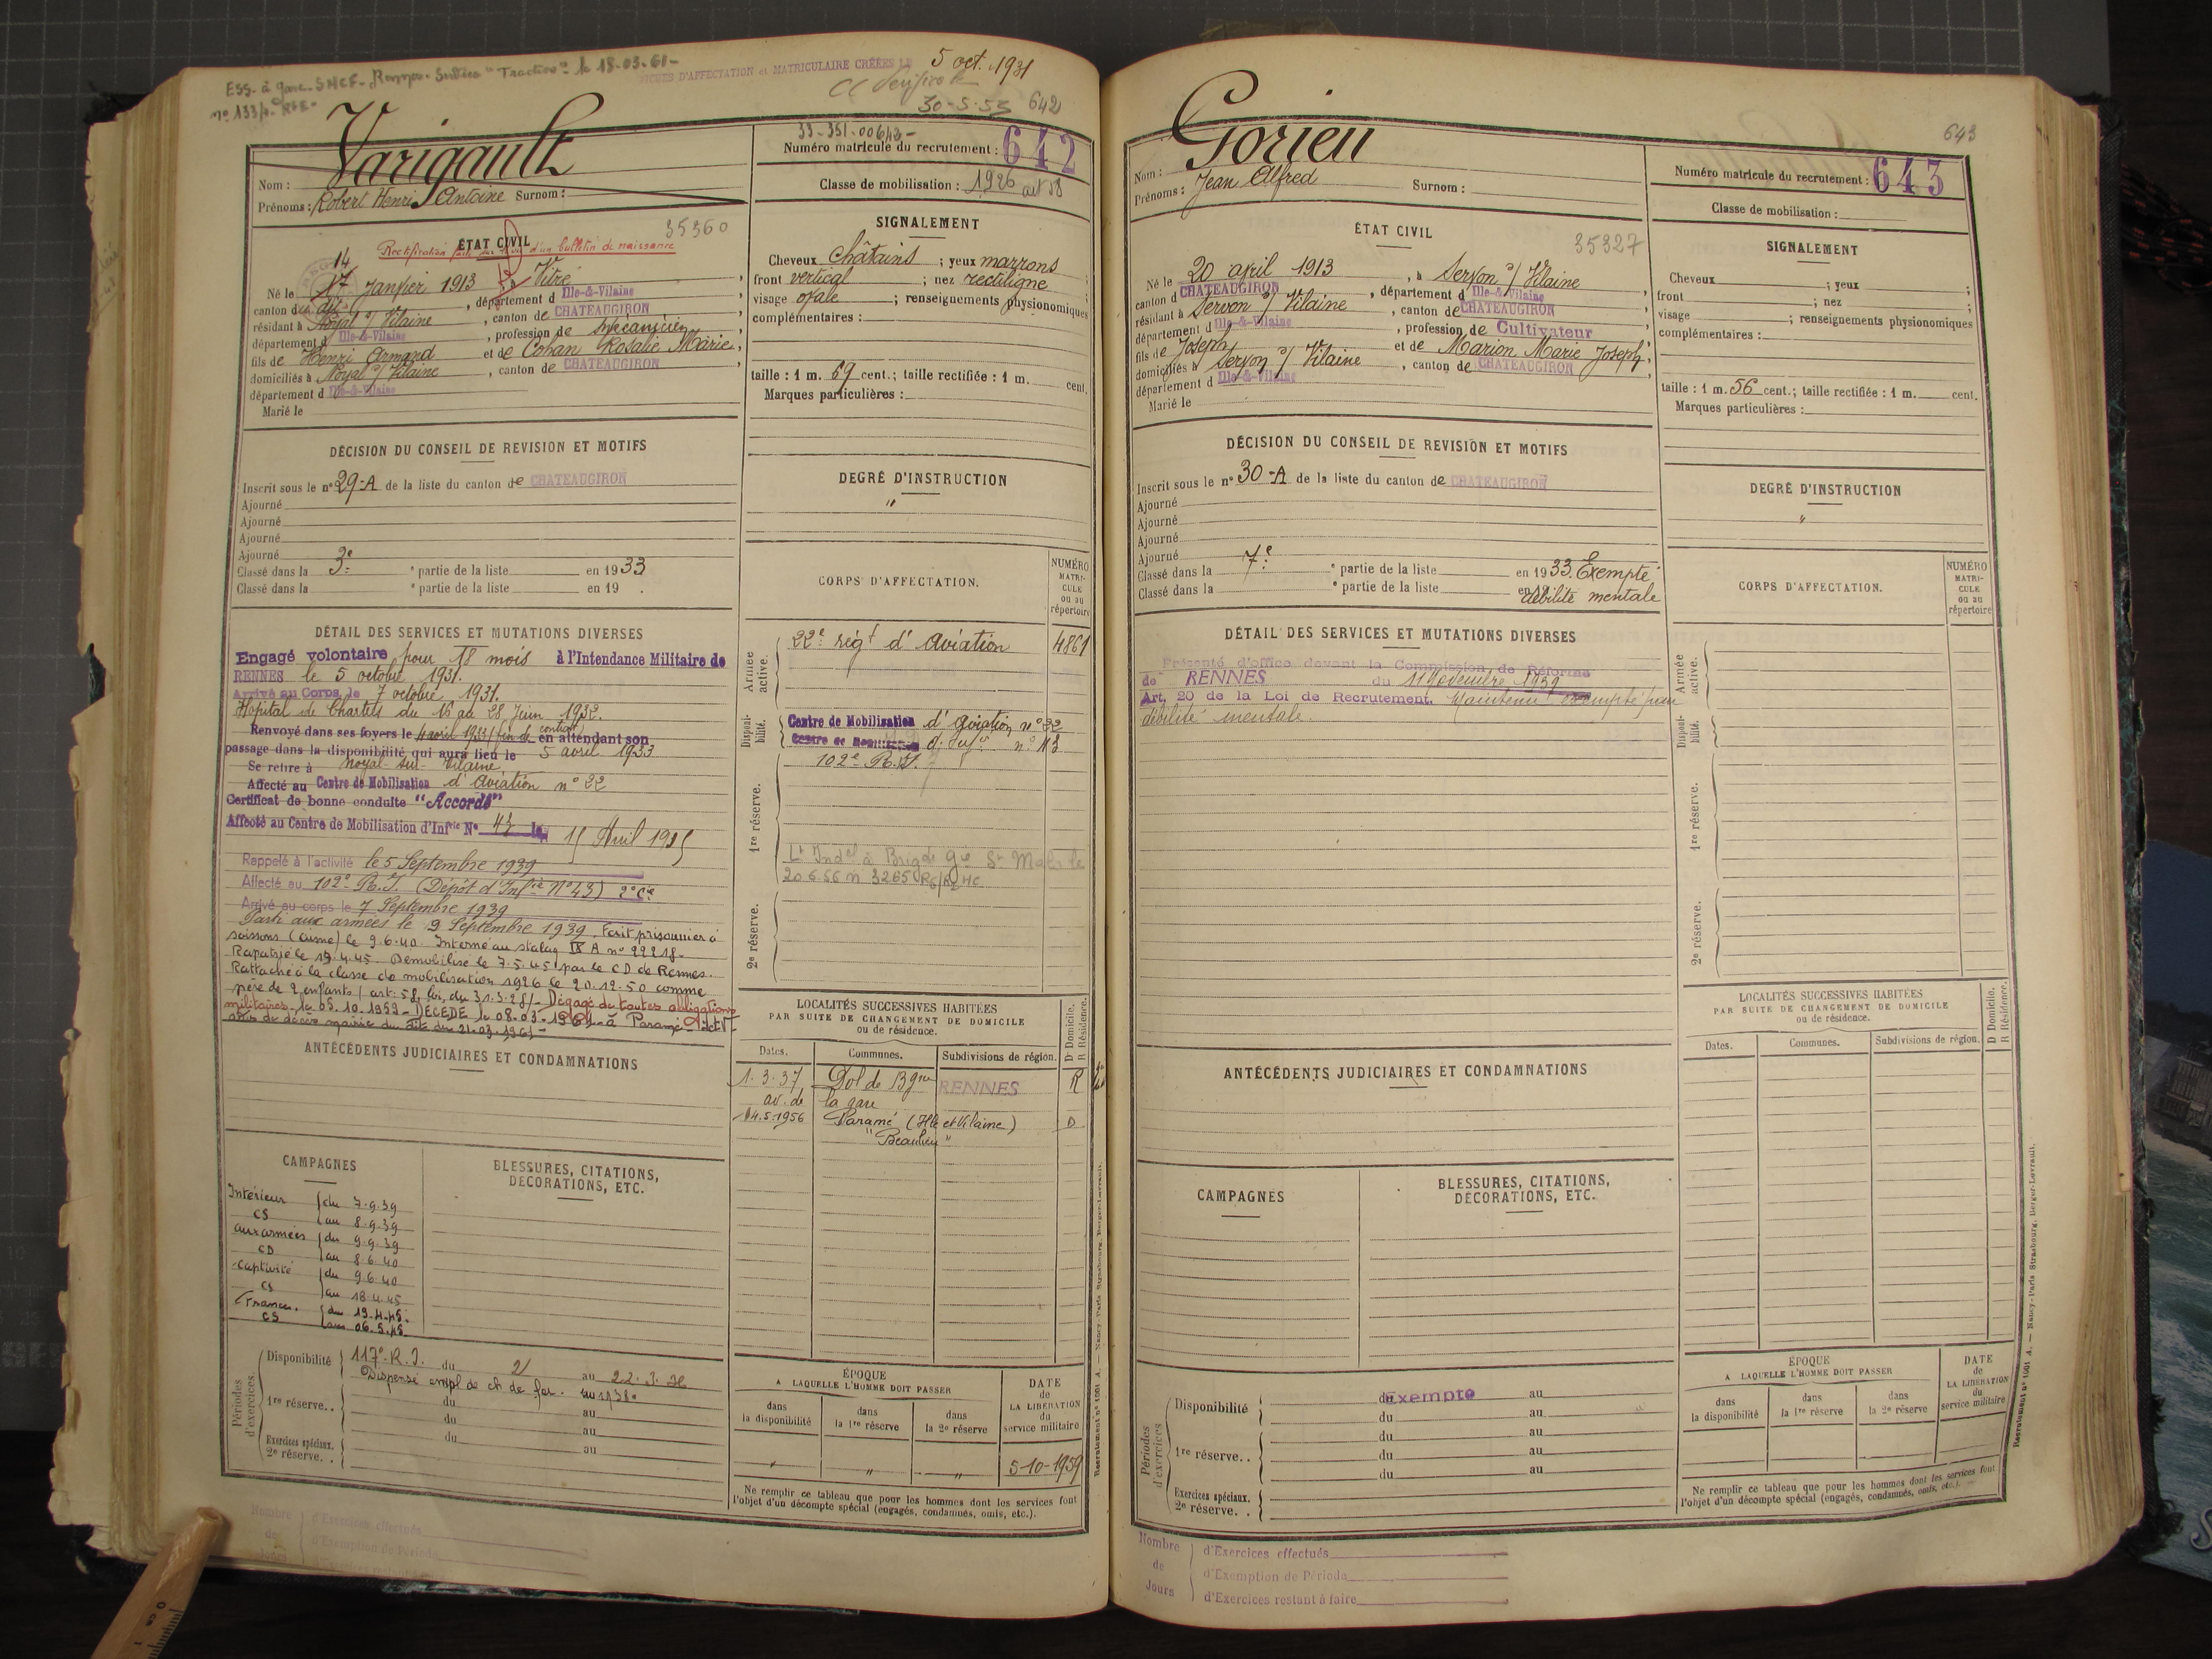 ESS. à gare SNCF. Rennes. Service "Traction" le 18-03-61-
FICHES D'AFFECTATION et MATRICULAIRE CRÉÉES LE 5 oct. 1931
30-5-53 642
Varigault
Nom :
Prénoms : Robert Henri Antoine Surnom :
33-351-00642-
Numéro matricule du recrutement : 642
Classe de mobilisation : 1926 art 58
35360
ÉTAT CIVIL
Rectification d'un bulletin de naissance
14
Né le 17 Janvier 1913 à Vitré,
canton du dit, département d Ille-&-Vilaine,
résidant à Noyal s/ Vilaine, canton de CHATEAUGIRON
département d Ille-&-Vilaine, profession de mécanicien
fils de Henri Armand et de Cohan Rosalie Marie,
domiciliés à Noyal s/ Vilaine, canton de CHATEAUGIRON,
département d Ille-&-Vilaine
Marié le
SIGNALEMENT
Cheveux châtains ; yeux marrons ;
front vertical ; nez rectiligne ;
visage ovale ; renseignements physionomiques
complémentaires :
taille : 1 m. 69 cent.; taille rectifiée : 1 m. cent.
Marques particulières :
DÉCISION DU CONSEIL DE REVISION ET MOTIFS
Inscrit sous le n° 29-A de la liste du canton de CHATEAUGIRON
Ajourné
Ajourné
Ajourné
Ajourné
Classé dans la 3e partie de la liste en 1933
Classé dans la e partie de la liste en 19 .
DEGRÉ D'INSTRUCTION
"
CORPS D'AFFECTATION.
NUMÉRO MATRICULE ou au répertoire
Armée active.
22e régt d'Aviation 4861
Disponibilité.
Centre de Mobilisation d'Aviation n° 22
Centre de Mobilisation d'Infie n° 43
102e R.I.
1re réserve.
20 6 56 n 3265
2e réserve.
DÉTAIL DES SERVICES ET MUTATIONS DIVERSES
Engagé volontaire pour 18 mois à l'Intendance Militaire de
RENNES le 5 octobre 1931.
Arrivé au Corps le 7 octobre 1931.
Hôpital de Chartres du 16 au 28 Juin 1932.
Renvoyé dans ses foyers le 4 avril 1933 (fin de contrat) en attendant son
passage dans la disponibilité qui aura lieu le 5 avril 1933
Se retire à Noyal-sur-Vilaine
Affecté au Centre de Mobilisation d'Aviation n° 22
Certificat de bonne conduite "Accordé"
Affecté au Centre de Mobilisation d'Infrie N° 43 le 15 Avril 1935
Rappelé à l'activité le 5 Septembre 1939
Affecté au 102e R.I. (Dépôt d'Infie N°43) 2e Cie
Arrivé au corps le 7 Septembre 1939
Parti aux armées le 9 Septembre 1939. Fait prisonnier à
Soissons (Aisne) le 9.6.40 Interné au stalag IX A n° 22218.
Rapatrié le 19.4.45 Démobilisé le 7.5.45 par le CD de Rennes.
Rattaché à la classe de mobilisation 1926 le 20.12.50 comme
père de 2 enfants (art. 58 loi du 31.3.28)- Dégagé de toutes obligations
militaires le 05.10.1959- DÉCÉDÉ le 08.03.1961 à Paramé-
ANTÉCÉDENTS JUDICIAIRES ET CONDAMNATIONS
LOCALITÉS SUCCESSIVES HABITÉES
PAR SUITE DE CHANGEMENT DE DOMICILE
ou de résidence.
Dates. Communes. Subdivisions de région. D Domicile. R Résidence.
1.3.37 Dol de Bgne RENNES R
av. de la gare
14.5.1956 Paramé (Ille et Vilaine) D
"Beaulieu"
CAMPAGNES
Intérieur du 7.9.39
CS au 8.9.39
aux armées du 9.9.39
CD au 8.6.40
captivité du 9.6.40
CS au 18.4.45
France. du 19.4.45.
CS au 06.5.45.
BLESSURES, CITATIONS,
DÉCORATIONS, ETC.
Périodes d'exercices.
Disponibilité 117e R.I. du 2 au 22.3.
Dispensé empl de ch de fer. 1938
1re réserve. . du au
du au
du au
Exercices spéciaux.
2e réserve. . au
ÉPOQUE
A LAQUELLE L'HOMME DOIT PASSER
dans la disponibilité
dans la 1re réserve
dans la 2e réserve
DATE de LA LIBÉRATION du service militaire
" " " 5-10-1959
Ne remplir ce tableau que pour les hommes dont les services font
l'objet d'un décompte spécial (engagés, condamnés, omis, etc.).
Recrutement n° 1001 A. — Nancy-Paris Strasbourg, Berger-Levrault.
Nombre de Jours
d'Exercices effectués
d'Exemption de Période
643
Gorieu
Nom :
Prénoms : Jean Alfred Surnom :
Numéro matricule du recrutement : 643
Classe de mobilisation :
ÉTAT CIVIL
35327
Né le 20 avril 1913, à Servon s/ Vilaine
canton d CHATEAUGIRON, département d Ille-&-Vilaine,
résidant à Servon s/ Vilaine, canton de CHATEAUGIRON,
département d Ille-&-Vilaine, profession de Cultivateur
fils de Joseph et de Marion Marie Joseph,
domiciliés à Servon s/ Vilaine, canton de CHATEAUGIRON,
département d Ille-&-Vilaine
Marié le
SIGNALEMENT
Cheveux ; yeux ;
front ; nez ;
visage ; renseignements physionomiques
complémentaires :
taille : 1 m. 56 cent.; taille rectifiée : 1 m. cent.
Marques particulières :
DÉCISION DU CONSEIL DE REVISION ET MOTIFS
Inscrit sous le n° 30-A de la liste du canton de CHATEAUGIRON
Ajourné
Ajourné
Ajourné
Ajourné
Classé dans la 7e partie de la liste en 1933. Exempté
Classé dans la e partie de la liste en 19 débilité mentale
DEGRÉ D'INSTRUCTION
"
CORPS D'AFFECTATION.
NUMÉRO MATRICULE ou au répertoire
Armée active.
Disponibilité.
1re réserve.
2e réserve.
DÉTAIL DES SERVICES ET MUTATIONS DIVERSES
Présenté d'office devant la Commission de Réforme
de RENNES du 11 Novembre 1939
Art. 20 de la Loi de Recrutement. Maintenu exempté pour
débilité mentale.
ANTÉCÉDENTS JUDICIAIRES ET CONDAMNATIONS
LOCALITÉS SUCCESSIVES HABITÉES
PAR SUITE DE CHANGEMENT DE DOMICILE
ou de résidence.
Dates. Communes. Subdivisions de région. D Domicile. R Résidence.
CAMPAGNES
BLESSURES, CITATIONS,
DÉCORATIONS, ETC.
Périodes d'exercices
Disponibilité du Exempté au
du au
du au
1re réserve. . du au
du au
Exercices spéciaux.
2e réserve. .
ÉPOQUE
A LAQUELLE L'HOMME DOIT PASSER
dans la disponibilité
dans la 1re réserve
dans la 2e réserve
DATE de LA LIBÉRATION du service militaire
Ne remplir ce tableau que pour les hommes dont les services font
l'objet d'un décompte spécial (engagés, condamnés, omis, etc.).
Recrutement n° 1001 A. — Nancy-Paris Strasbourg, Berger-Levrault.
Nombre de Jours
d'Exercices effectués
d'Exemption de Période
d'Exercices restant à faire